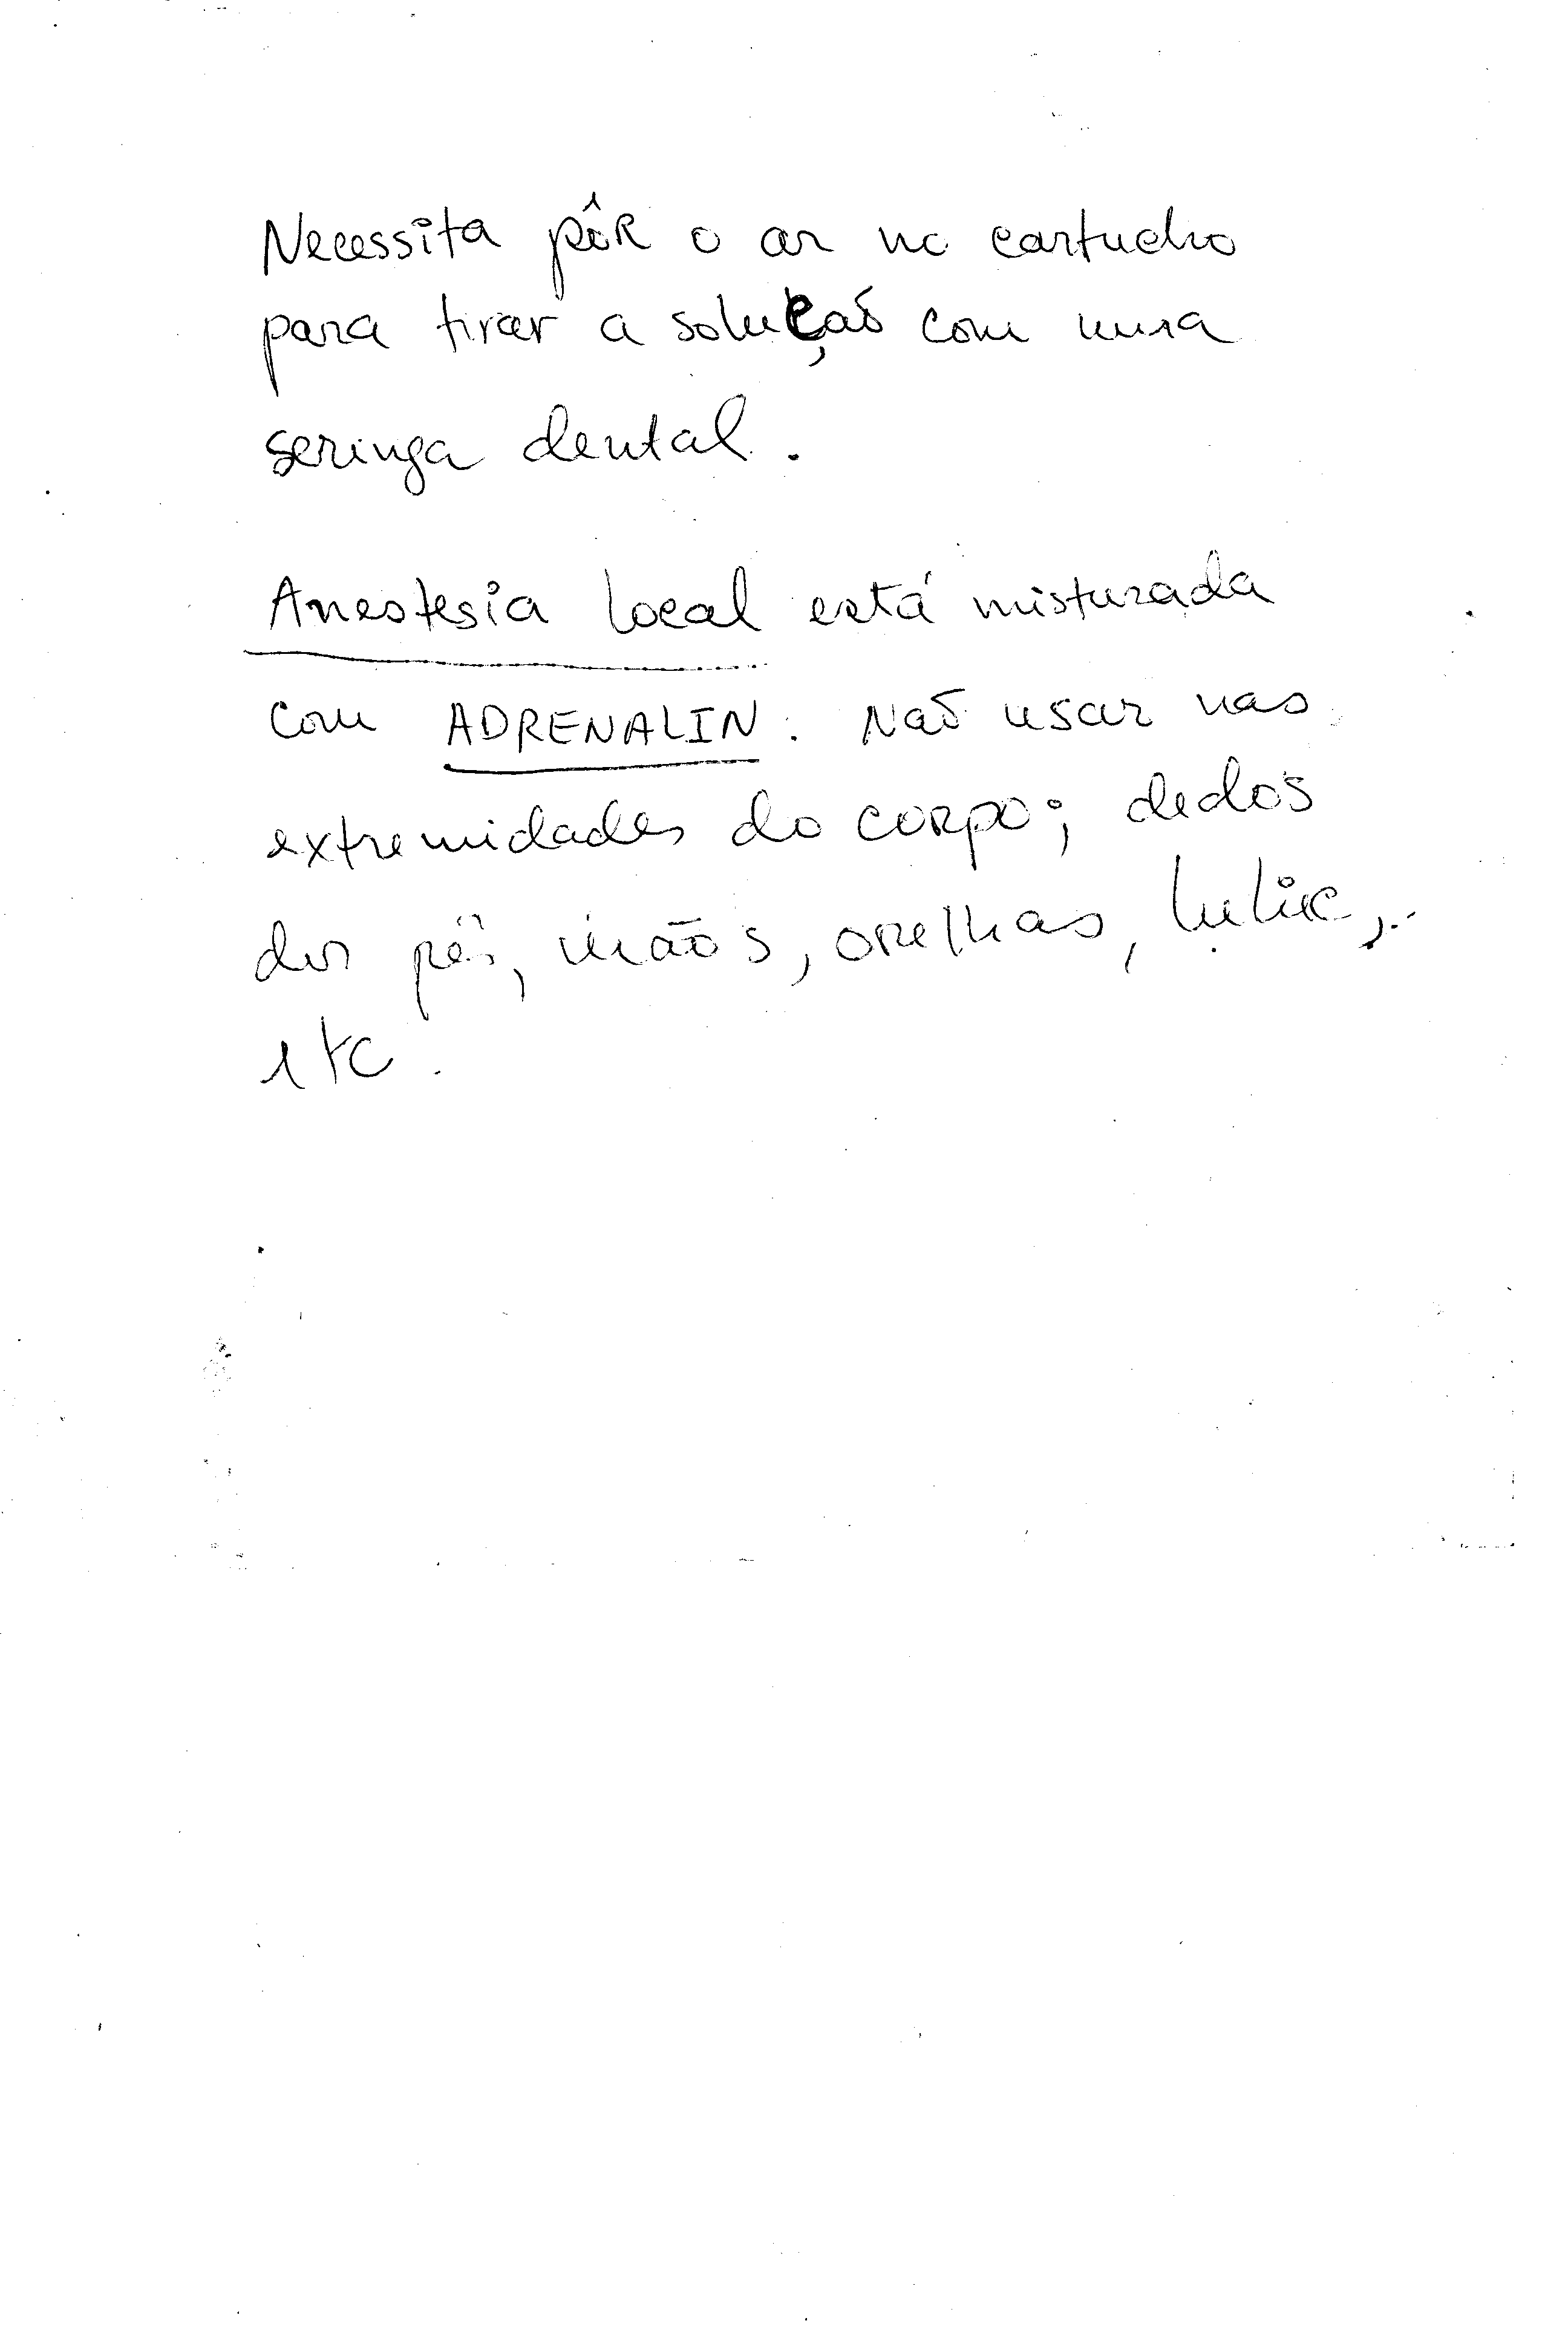 Necessita pôr o ar no cartucho
para tirar a solução com uma
seringa dental.
Anestesia local está misturada
com ADRENALIN. Não usar nas
extremidades do corpo; dedos
dos pés, mãos, orelhas,
etc.